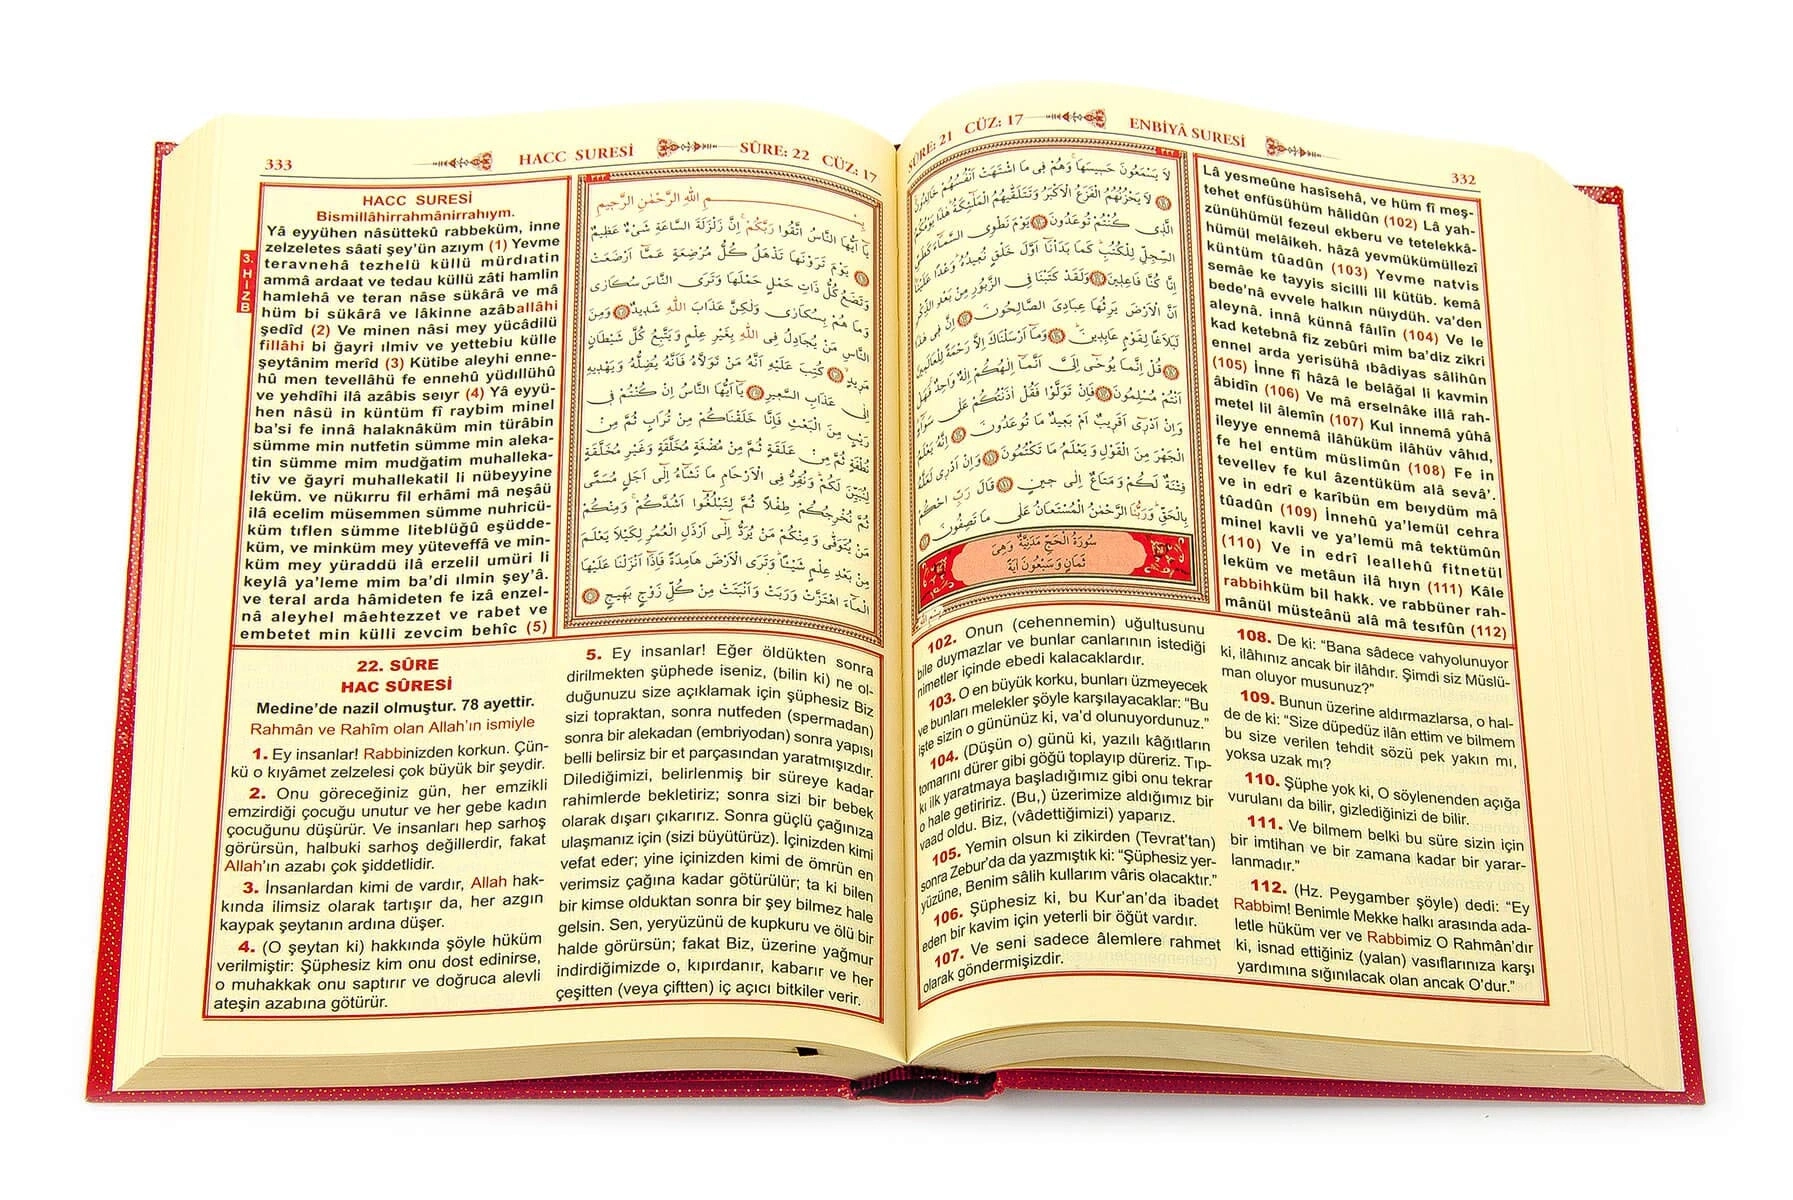 SÛRE: 21 CÜZ: 17
ENBİYÂ SURESİ
332
لَا يَسْمَعُونَ حَسِيسَهَا وَهُمْ فِى مَا اشْتَهَتْ اَنْفُسُهُمْ خَالِدُونَ
لَا يَحْزُنُهُمُ الْفَزَعُ الْاَكْبَرُ وَتَتَلَقّٰيهُمُ الْمَلٰٓئِكَةُ هٰذَا يَوْمُكُمُ
الَّذِى كُنْتُمْ تُوعَدُونَ يَوْمَ نَطْوِى السَّمَٓاءَ كَطَىِّ
السِّجِلِّ لِلْكُتُبِ كَمَا بَدَاْنَٓا اَوَّلَ خَلْقٍ نُعِيدُهُ وَعْدًا عَلَيْنَا
اِنَّا كُنَّا فَاعِلِينَ وَلَقَدْ كَتَبْنَا فِى الزَّبُورِ مِنْ بَعْدِ الذِّكْرِ
اَنَّ الْاَرْضَ يَرِثُهَا عِبَادِىَ الصَّالِحُونَ اِنَّ فِى هٰذَا
لَبَلَاغًا لِقَوْمٍ عَابِدِينَ وَمَٓا اَرْسَلْنَاكَ اِلَّا رَحْمَةً لِلْعَالَمِينَ
قُلْ اِنَّمَا يُوحٰٓى اِلَىَّ اَنَّمَٓا اِلٰهُكُمْ اِلٰهٌ وَاحِدٌ فَهَلْ
اَنْتُمْ مُسْلِمُونَ فَاِنْ تَوَلَّوْا فَقُلْ اٰذَنْتُكُمْ عَلٰى سَوَٓاءٍ
وَاِنْ اَدْرِٓى اَقَرِيبٌ اَمْ بَعِيدٌ مَا تُوعَدُونَ اِنَّهُ يَعْلَمُ
الْجَهْرَ مِنَ الْقَوْلِ وَيَعْلَمُ مَا تَكْتُمُونَ وَاِنْ اَدْرِى لَعَلَّهُ
فِتْنَةٌ لَكُمْ وَمَتَاعٌ اِلٰى حِينٍ قَالَ رَبِّ احْكُمْ
بِالْحَقِّ وَرَبُّنَا الرَّحْمٰنُ الْمُسْتَعَانُ عَلٰى مَا تَصِفُونَ
سُورَةُ الْحَجِّ مَدَنِيَّةٌ وَهِىَ
ثَمَانٍ وَسَبْعُونَ اٰيَةً
Lâ yesmeûne hasîsehâ, ve hüm fî meş-
tehet enfüsühüm hâlidûn (102) Lâ yah-
zünühümül fezeul ekberu ve tetelekkâ-
hümül melâikeh. hâzâ yevmükümüllezî
küntüm tûadûn (103) Yevme natvis
semâe ke tayyis sicilli lil kütüb. kemâ
bede'nâ evvele halkın nüıydüh. va'den
aleynâ. innâ künnâ fâılîn (104) Ve le
kad ketebnâ fiz zebûri mim ba'diz zikri
ennel arda yerisühâ ıbâdiyas sâlihûn
(105) İnne fî hâzâ le belâğal li kavmin
âbidîn (106) Ve mâ erselnâke illâ rah-
metel lil âlemîn (107) Kul innemâ yûhâ
ileyye ennemâ ilâhüküm ilâhüv vâhıd,
fe hel entüm müslimûn (108) Fe in
tevellev fe kul âzentüküm alâ sevâ'.
ve in edrî e karîbün em beıydüm mâ
tûadûn (109) İnnehû ya'lemül cehra
minel kavli ve ya'lemü mâ tektümûn
(110) Ve in edrî leallehû fitnetül
leküm ve metâun ilâ hıyn (111) Kâle
rabbihküm bil hakk. ve rabbüner rah-
mânül müsteânü alâ mâ tesıfûn (112)
102. Onun (cehennemin) uğultusunu
bile duymazlar ve bunlar canlarının istediği
nimetler içinde ebedi kalacaklardır.
103. O en büyük korku, bunları üzmeyecek
ve bunları melekler şöyle karşılayacaklar: “Bu
işte sizin o gününüz ki, va’d olunuyordunuz.”
104. (Düşün o) günü ki, yazılı kâğıtların
tomarını dürer gibi göğü toplayıp düreriz. Tıp-
kı ilk yaratmaya başladığımız gibi onu tekrar
o hale getiririz. (Bu,) üzerimize aldığımız bir
vaad oldu. Biz, (vâdettiğimizi) yaparız.
105. Yemin olsun ki zikirden (Tevrat'tan)
sonra Zebur'da da yazmıştık ki: “Şüphesiz yer-
yüzüne, Benim sâlih kullarım vâris olacaktır.”
106. Şüphesiz ki, bu Kur'an'da ibadet
eden bir kavim için yeterli bir öğüt vardır.
107. Ve seni sadece âlemlere rahmet
olarak göndermişizdir.
108. De ki: “Bana sâdece vahyolunuyor
ki, ilâhınız ancak bir ilâhdır. Şimdi siz Müslü-
man oluyor musunuz?”
109. Bunun üzerine aldırmazlarsa, o hal-
de de ki: “Size düpedüz ilân ettim ve bilmem
bu size verilen tehdit sözü pek yakın mı,
yoksa uzak mı?
110. Şüphe yok ki, O söylenenden açığa
vurulanı da bilir, gizlediğinizi de bilir.
111. Ve bilmem belki bu süre sizin için
bir imtihan ve bir zamana kadar bir yarar-
lanmadır.”
112. (Hz. Peygamber şöyle) dedi: “Ey
Rabbim! Benimle Mekke halkı arasında ada-
letle hüküm ver ve Rabbimiz O Rahmân’dır
ki, isnad ettiğiniz (yalan) vasıflarınıza karşı
yardımına sığınılacak olan ancak O’dur.”
333
HACC SURESİ
SÛRE: 22 CÜZ: 17
3. HİZB
HACC SURESİ
Bismillâhirrahmânirrahıym.
Yâ eyyühen nâsüttekû rabbeküm, inne
zelzeletes sâati şey'ün azıym (1) Yevme
teravnehâ tezhelü küllü mürdıatin
ammâ ardaat ve tedau küllü zâti hamlin
hamlehâ ve teran nâse sükârâ ve mâ
hüm bi sükârâ ve lâkinne azâballâhi
şedîd (2) Ve minen nâsi mey yücâdilü
fillâhi bi ğayri ılmiv ve yettebiu külle
şeytânim merîd (3) Kütibe aleyhi enne-
hû men tevellâhü fe ennehû yüdıllühû
ve yehdîhi ilâ azâbis seıyr (4) Yâ eyyü-
hen nâsü in küntüm fî raybim minel
ba'si fe innâ halaknâküm min türâbin
sümme min nutfetin sümme min aleka-
tin sümme mim mudğatim muhalleka-
tiv ve ğayri muhallekatil li nübeyyine
leküm. ve nükırru fil erhâmi mâ neşâü
ilâ ecelim müsemmen sümme nuhricü-
küm tıflen sümme liteblüğû eşüdde-
küm, ve minküm mey yüteveffâ ve min-
küm mey yüraddü ilâ erzelil umüri li
keylâ ya'leme mim ba'di ılmin şey'â.
ve teral arda hâmideten fe izâ enzel-
nâ aleyhel mâehtezzet ve rabet ve
embetet min külli zevcim behîc (5)
بِسْمِ اللّٰهِ الرَّحْمٰنِ الرَّحِيمِ
يَٓا اَيُّهَا النَّاسُ اتَّقُوا رَبَّكُمْ اِنَّ زَلْزَلَةَ السَّاعَةِ شَىْءٌ عَظِيمٌ
يَوْمَ تَرَوْنَهَا تَذْهَلُ كُلُّ مُرْضِعَةٍ عَمَّٓا اَرْضَعَتْ
وَتَضَعُ كُلُّ ذَاتِ حَمْلٍ حَمْلَهَا وَتَرَى النَّاسَ سُكَارٰى
وَمَا هُمْ بِسُكَارٰى وَلٰكِنَّ عَذَابَ اللّٰهِ شَدِيدٌ وَمِنَ
النَّاسِ مَنْ يُجَادِلُ فِى اللّٰهِ بِغَيْرِ عِلْمٍ وَيَتَّبِعُ كُلَّ شَيْطَانٍ
مَرِيدٍ كُتِبَ عَلَيْهِ اَنَّهُ مَنْ تَوَلَّاهُ فَاَنَّهُ يُضِلُّهُ وَيَهْدِيهِ
اِلٰى عَذَابِ السَّعِيرِ يَٓا اَيُّهَا النَّاسُ اِنْ كُنْتُمْ فِى
رَيْبٍ مِنَ الْبَعْثِ فَاِنَّا خَلَقْنَاكُمْ مِنْ تُرَابٍ ثُمَّ مِنْ
نُطْفَةٍ ثُمَّ مِنْ عَلَقَةٍ ثُمَّ مِنْ مُضْغَةٍ مُخَلَّقَةٍ وَغَيْرِ مُخَلَّقَةٍ
لِنُبَيِّنَ لَكُمْ وَنُقِرُّ فِى الْاَرْحَامِ مَا نَشَٓاءُ اِلٰٓى اَجَلٍ مُسَمًّى
ثُمَّ نُخْرِجُكُمْ طِفْلًا ثُمَّ لِتَبْلُغُٓوا اَشُدَّكُمْ وَمِنْكُمْ
مَنْ يُتَوَفّٰى وَمِنْكُمْ مَنْ يُرَدُّ اِلٰٓى اَرْذَلِ الْعُمُرِ لِكَيْلَا يَعْلَمَ
مِنْ بَعْدِ عِلْمٍ شَيْئًا وَتَرَى الْاَرْضَ هَامِدَةً فَاِذَٓا اَنْزَلْنَا عَلَيْهَا
الْمَٓاءَ اهْتَزَّتْ وَرَبَتْ وَاَنْبَتَتْ مِنْ كُلِّ زَوْجٍ بَهِيجٍ
22. SÛRE
HAC SÛRESİ
Medine’de nazil olmuştur. 78 ayettir.
Rahmân ve Rahîm olan Allah’ın ismiyle
1. Ey insanlar! Rabbinizden korkun. Çün-
kü o kıyâmet zelzelesi çok büyük bir şeydir.
2. Onu göreceğiniz gün, her emzikli
emzirdiği çocuğu unutur ve her gebe kadın
çocuğunu düşürür. Ve insanları hep sarhoş
görürsün, halbuki sarhoş değillerdir, fakat
Allah’ın azabı çok şiddetlidir.
3. İnsanlardan kimi de vardır, Allah hak-
kında ilimsiz olarak tartışır da, her azgın
kaypak şeytanın ardına düşer.
4. (O şeytan ki) hakkında şöyle hüküm
verilmiştir: Şüphesiz kim onu dost edinirse,
o muhakkak onu saptırır ve doğruca alevli
ateşin azabına götürür.
5. Ey insanlar! Eğer öldükten sonra
dirilmekten şüphede iseniz, (bilin ki) ne ol-
duğunuzu size açıklamak için şüphesiz Biz
sizi topraktan, sonra nutfeden (spermadan)
sonra bir alekadan (embriyodan) sonra yapısı
belli belirsiz bir et parçasından yaratmışızdır.
Dilediğimizi, belirlenmiş bir süreye kadar
rahimlerde bekletiriz; sonra sizi bir bebek
olarak dışarı çıkarırız. Sonra güçlü çağınıza
ulaşmanız için (sizi büyütürüz). İçinizden kimi
vefat eder; yine içinizden kimi de ömrün en
verimsiz çağına kadar götürülür; ta ki bilen
bir kimse olduktan sonra bir şey bilmez hale
gelsin. Sen, yeryüzünü de kupkuru ve ölü bir
halde görürsün; fakat Biz, üzerine yağmur
indirdiğimizde o, kıpırdanır, kabarır ve her
çeşitten (veya çiftten) iç açıcı bitkiler verir.